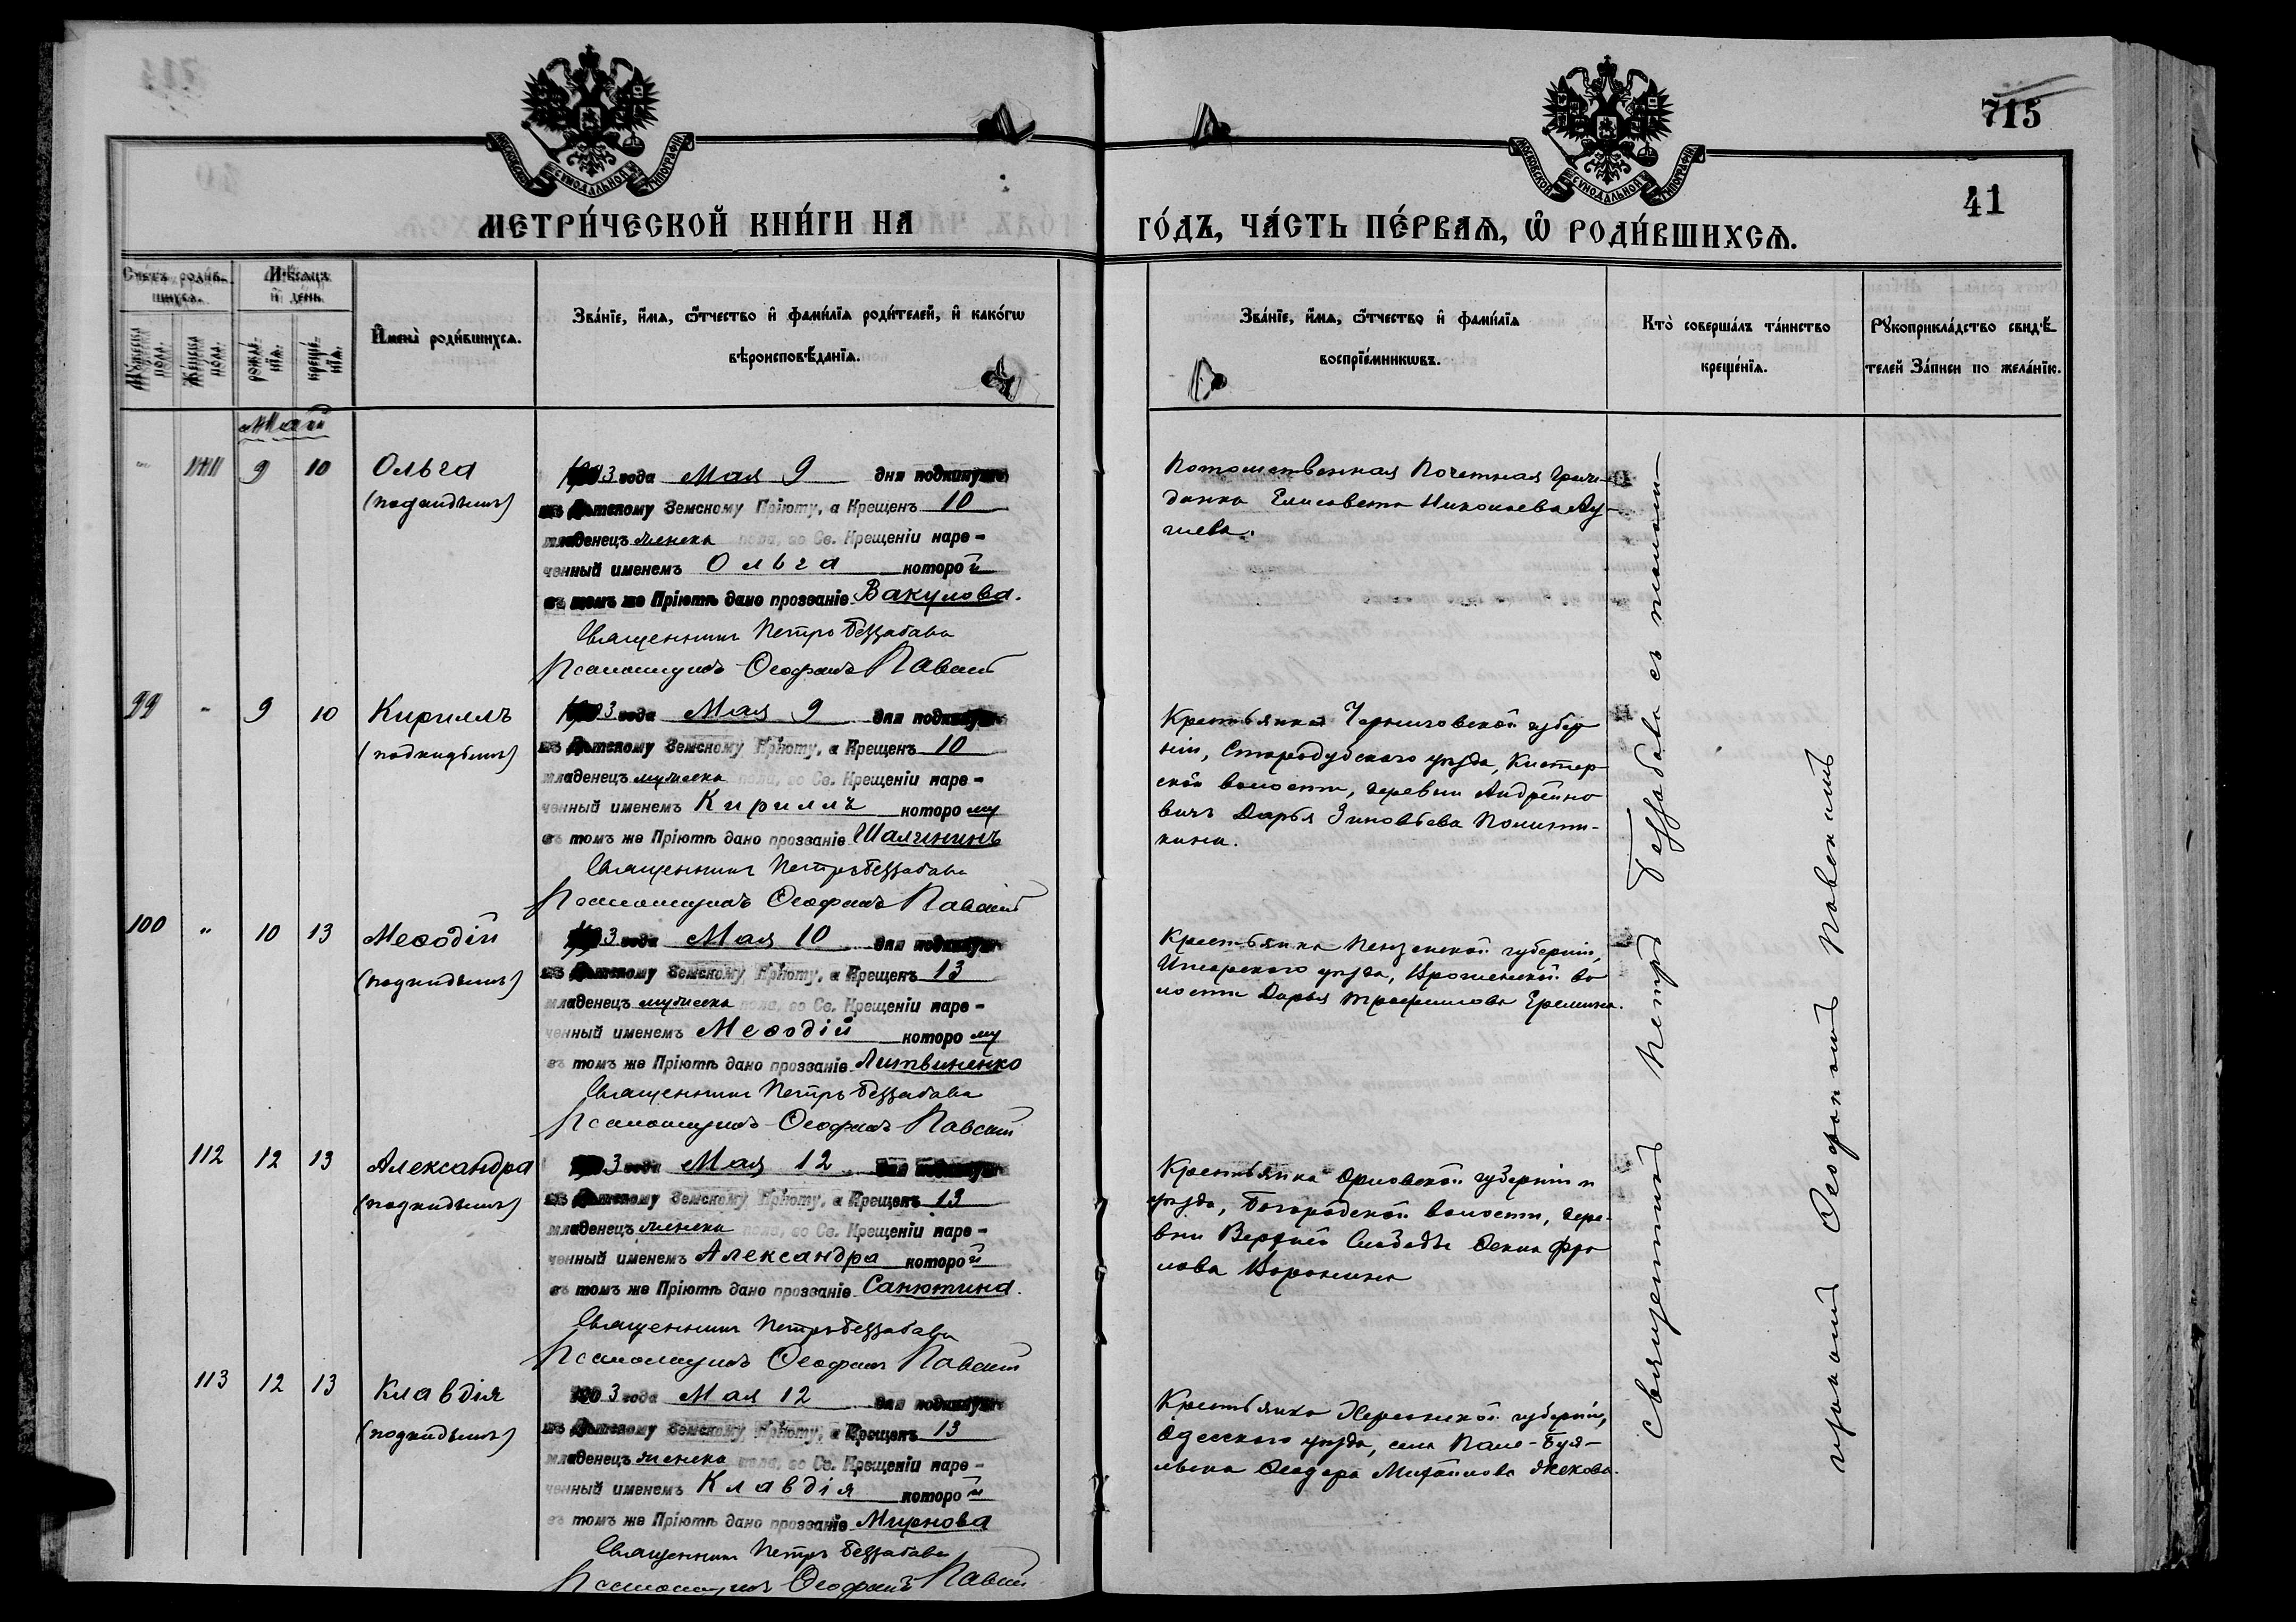 715
41
МОСКОВСКОЙ СУНОДАЛЬНОЙ ТИПОГРАФІИ
МОСКОВСКОЙ СУНОДАЛЬНОЙ ТИПОГРАФІИ
МЕТРИ́ЧЕСКОЙ КНИ́ГИ НА
ГО́ДЪ, ЧА́СТЬ ПЕ́РВАѦ, Ѡ҆ РОДИ́ВШИХСѦ.
Счетъ родив-
шихся.
Мѣсяцъ
и день.
Мужеска пола.
Женска пола.
рожде-
нія.
креще-
нія.
Имена родившихся.
Зва́нїе, и҆́мѧ, ѻ҆́тчество и҆ фамі́лїѧ роди́телей, и҆ како́гѡ
вѣроисповѣ́данїѧ.
Зва́нїе, и҆́мѧ, ѻ҆́тчество и҆ фамі́лїѧ
воспрїе́мникѡвъ.
Кто̀ соверша́лъ та́инство
креще́нїѧ.
Рꙋкоприкла́дство свидѣ́-
телей За́писи по жела́нїю.
Май
" 111 9 10 Ольга
(подкидышъ)
1903 года Мая 9 дня подкинутъ
въ Дѣтскому Земскому Пріюту, а Крещенъ 10
младенецъ женска пола, во Св. Крещеніи наре-
ченный именемъ Ольга которой
въ томъ же Пріютѣ дано прозваніе Вакулова.
Священникъ Петръ Беззабава
Псаломщикъ Ѳеофанъ Павскій
Потомственная Почетная Граж-
данка Елисавета Николаева
99 " 9 10 Кириллъ
(подкидышъ)
1903 года Мая 9 дня подкинутъ
въ Дѣтскому Земскому Пріюту, а Крещенъ 10
младенецъ мужска пола, во Св. Крещеніи наре-
ченный именемъ Кириллъ которому
въ томъ же Пріютѣ дано прозваніе Шалгининъ
Священникъ Петръ Беззабава
Псаломщикъ Ѳеофанъ Павскій
Крестьянка Черниговской губер
ніи, Стародубскаго уѣзда, Кистер-
ской волости, деревни Андрейко
вичъ Дарья Зиновьева
100 " 10 13 Меѳодій
(подкидышъ)
1903 года Мая 10 дня подкинутъ
въ Дѣтскому Земскому Пріюту, а Крещенъ 13
младенецъ мужска пола, во Св. Крещеніи наре-
ченный именемъ Меѳодій которому
въ томъ же Пріютѣ дано прозваніе Литвиненко
Священникъ Петръ Беззабава
Псаломщикъ Ѳеофанъ Павскій
Крестьянка Пензенской губерніи,
Инсарского уѣзда, во
лости Дарья Трофимова Еремина.
112 12 13 Александра
(подкидышъ)
1903 года Мая 12 дня подкинутъ
въ Дѣтскому Земскому Пріюту, а Крещенъ 13
младенецъ женска пола, во Св. Крещеніи наре-
ченный именемъ Александра которой
въ томъ же Пріютѣ дано прозваніе Санютина.
Священникъ Петръ Беззабава
Псаломщикъ Ѳеофанъ Павскій
Крестьянка Орловской губерніи и
уѣзда, Богородской волости, дере-
вни Верхней Слободы Ѳекла Фро
лова Воронина
113 12 13 Клавдія
(подкидышъ)
1903 года Мая 12 дня подкинутъ
въ Дѣтскому Земскому Пріюту, а Крещенъ 13
младенецъ женска пола, во Св. Крещеніи наре-
ченный именемъ Клавдія которой
въ томъ же Пріютѣ дано прозваніе Мирнова
Священникъ Петръ Беззабава
Псаломщикъ Ѳеофанъ Павскій
Крестьянка Херсонской губерніи,
Одесского уѣзда, села
Ѳеодора Михайлова
Священникъ Петръ Беззабава съ псалом-
щикомъ Ѳеофаномъ Павскимъ